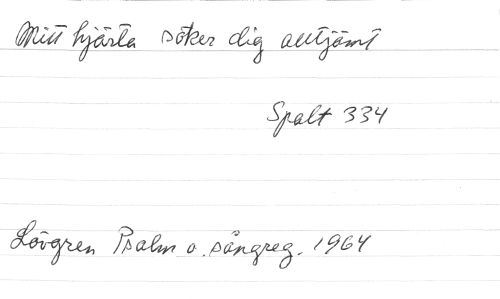 Mitt hjärta söker dig alltjämt
Spalt 334
Lövgren Psalm o. sångreg. 1964